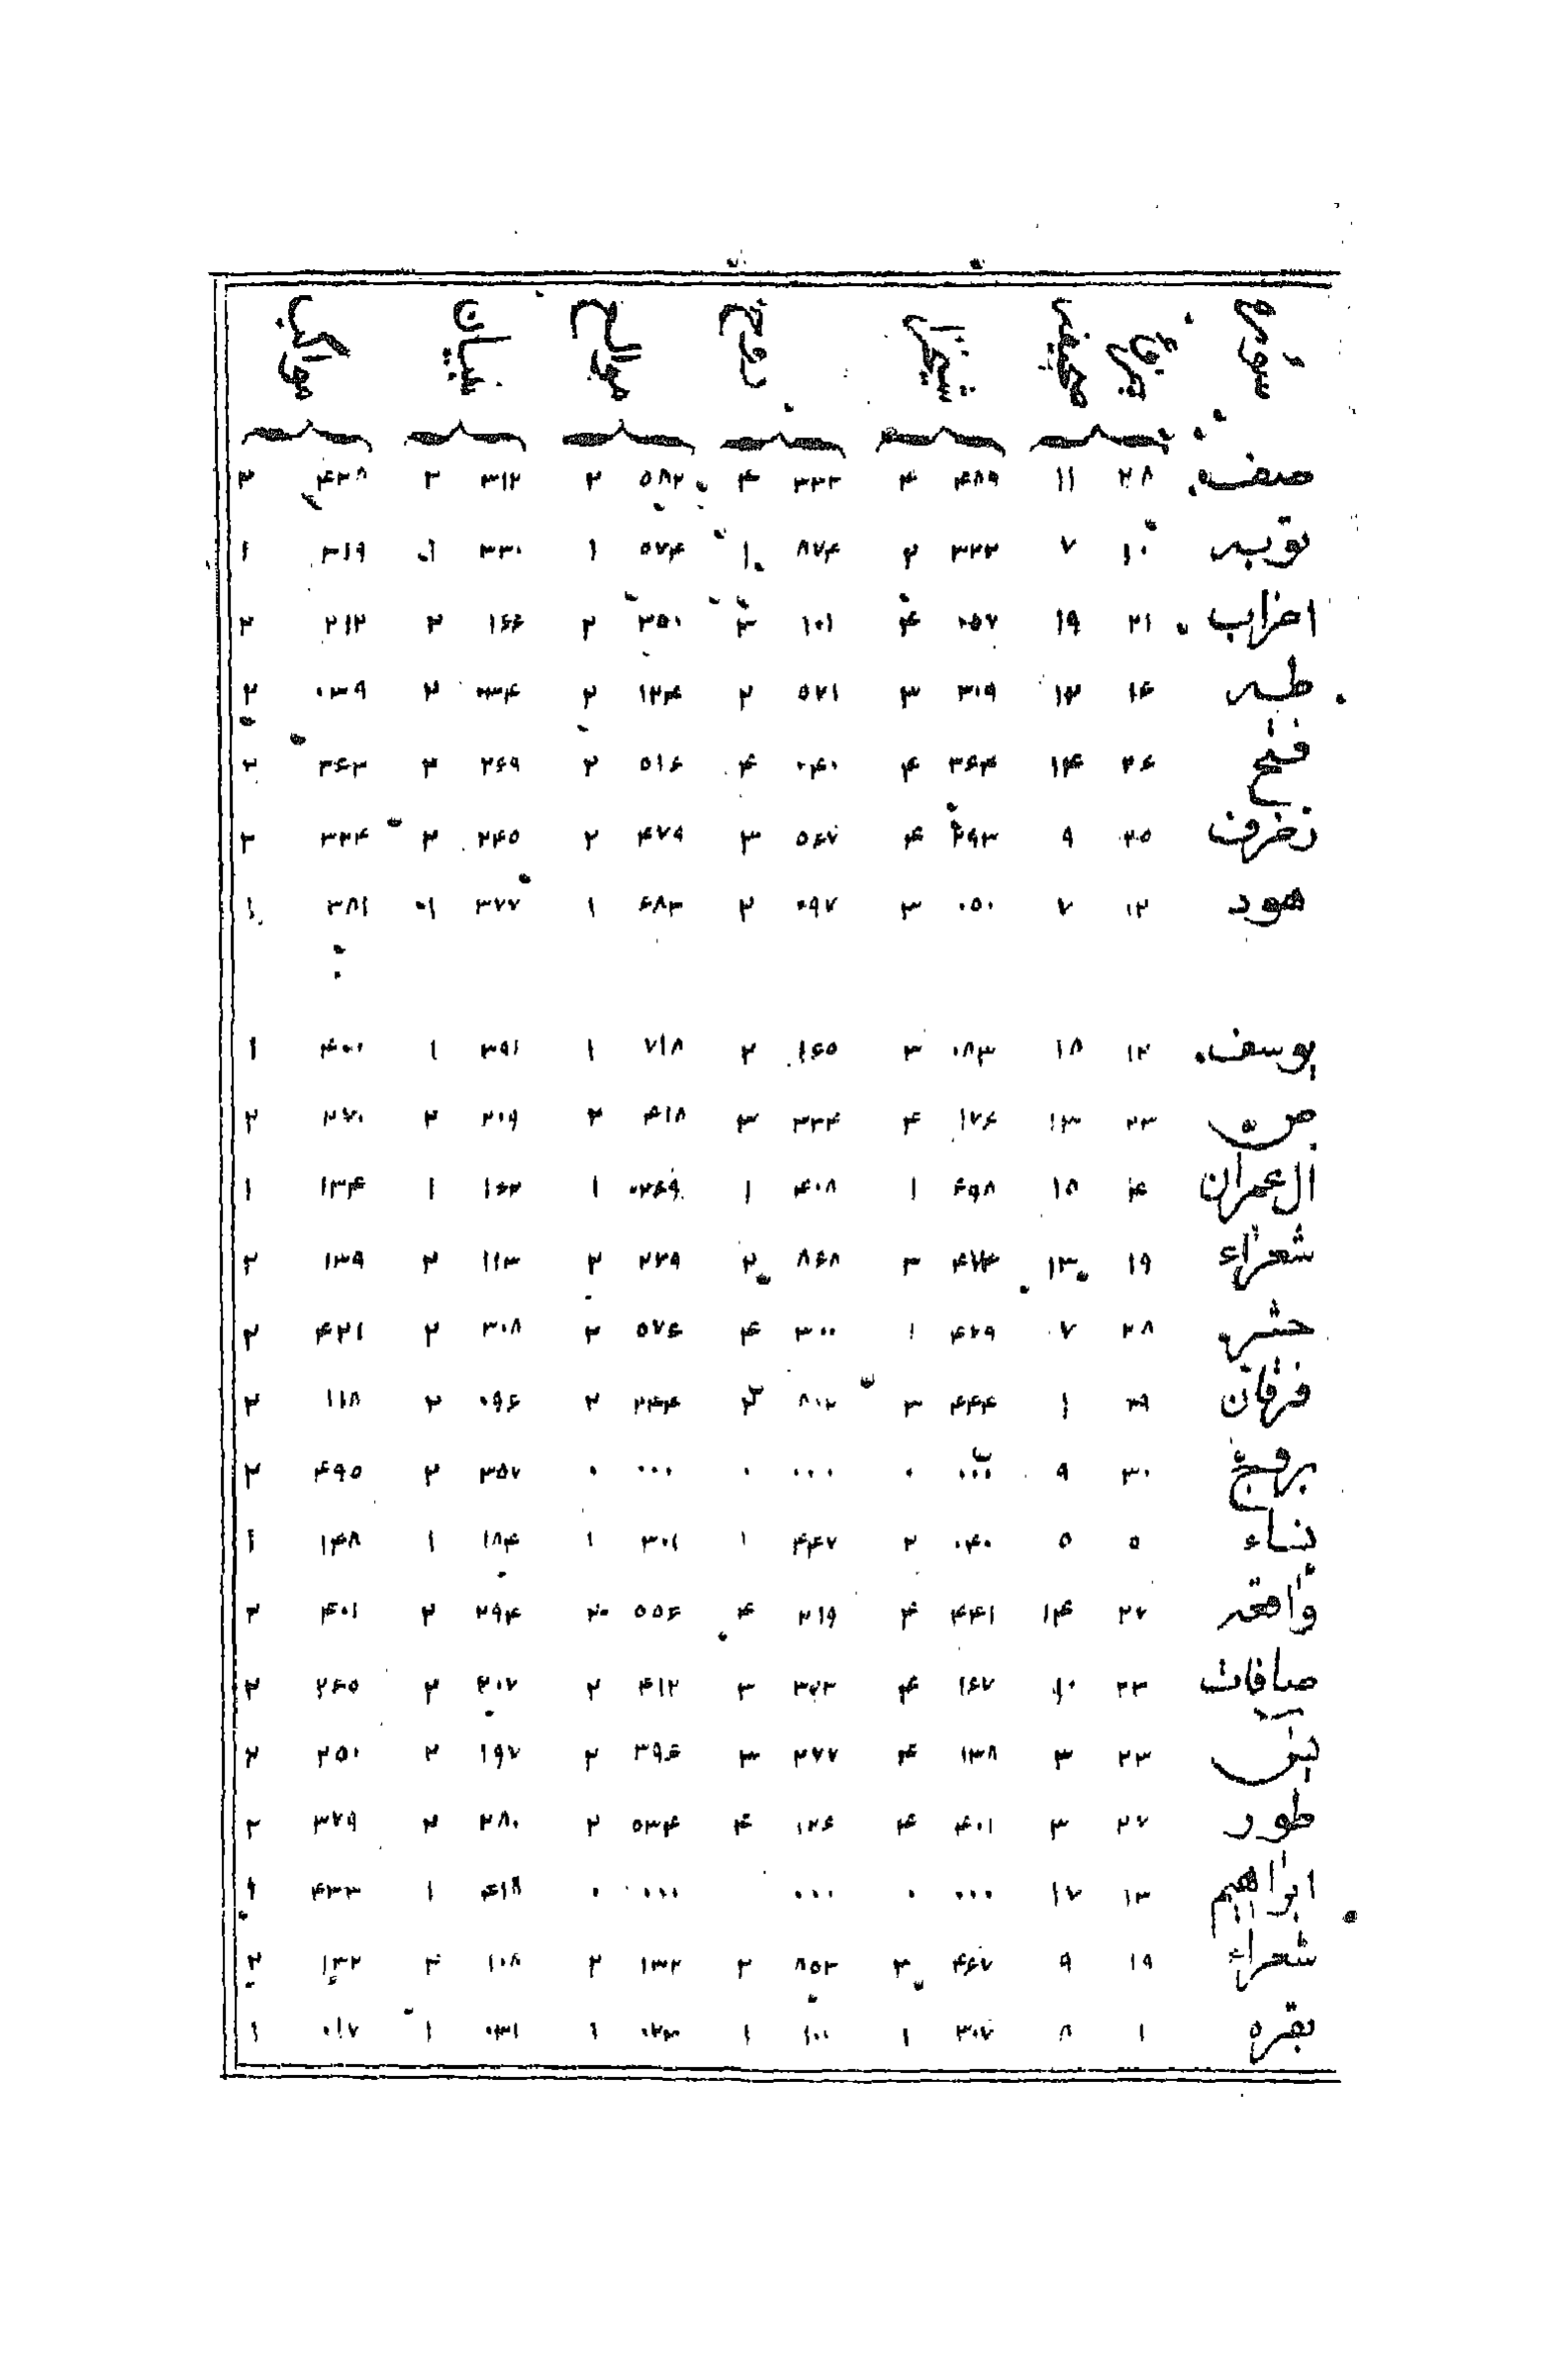 سوره جزو صفحه روح تبیان مواهب
صف ۲۸ ۱۱ ۴۸۹ ۴ ۳۳۳ ۴ ۵۸۲ ۲ ۳۱۲ ۲ ۴۳۸ ۲
توبه ۱۰ ۷ ۳۲۲ ۲ ۸۷۴ ۱ ۵۷۴ ۱ ۳۳۰ ۱ ۳۱۹ ۱
احزاب ۲۱ ۱۹ ۰۵۷ ۴ ۱۰۱ ۳ ۳۵۰ ۲ ۱۶۶ ۲ ۲۱۲ ۲
طه ۱۶ ۱۲ ۳۰۹ ۳ ۵۷۱ ۲ ۱۲۴ ۲ ۰۳۴ ۲ ۰۳۹ ۲
فتح ۲۶ ۱۴ ۳۶۴ ۴ ۰۴۰ ۴ ۵۱۶ ۲ ۲۶۹ ۲ ۳۶۳ ۲
زخرف ۲۵ ۹ ۲۹۳ ۴ ۵۶۷ ۳ ۴۷۹ ۲ ۲۴۵ ۲ ۳۲۴ ۲
هود ۱۲ ۷ ۰۵۰ ۳ ۰۹۷ ۲ ۶۸۳ ۱ ۳۷۷ ۱ ۳۸۱ ۱
یوسف ۱۲ ۱۸ ۰۸۳ ۳ ۱۶۵ ۲ ۷۱۸ ۱ ۳۹۱ ۱ ۴۰۰ ۱
ص ۲۳ ۱۳ ۱۷۶ ۴ ۳۳۴ ۳ ۴۱۸ ۲ ۲۰۹ ۲ ۲۷۰ ۲
ال عمران ۴ ۱۸ ۶۹۸ ۱ ۴۰۸ ۱ ۲۶۹ ۱ ۱۶۲ ۱ ۱۳۴ ۱
شعراء ۱۹ ۱۳ ۴۷۴ ۳ ۸۶۸ ۲ ۲۳۹ ۲ ۱۱۳ ۲ ۱۳۹ ۲
حشر ۲۸ ۷ ۴۲۹ ۱ ۳۰۰ ۴ ۵۷۶ ۲ ۳۰۸ ۲ ۴۲۱ ۲
فرقان ۱۹ ۱ ۴۴۴ ۳ ۸۰۲ ۲ ۲۴۴ ۲ ۰۹۶ ۲ ۱۱۸ ۲
بروج ۳۰ ۹ ۰۰۰ ۰ ۰۰۰ ۰ ۰۰۰ ۰ ۳۵۷ ۲ ۴۹۵ ۲
نساء ۵ ۵ ۰۴۰ ۲ ۴۴۷ ۱ ۳۰۱ ۱ ۱۸۴ ۱ ۱۴۸ ۱
واقعه ۲۷ ۱۴ ۴۴۱ ۴ ۲۱۹ ۴ ۵۵۶ ۲ ۲۹۴ ۲ ۴۰۱ ۲
صافات ۲۳ ۱۰ ۱۶۷ ۴ ۳۷۳ ۳ ۴۱۲ ۲ ۲۰۷ ۲ ۲۶۵ ۲
یس ۲۳ ۳ ۱۳۸ ۴ ۲۷۷ ۳ ۳۹۶ ۲ ۱۹۷ ۲ ۲۵۰ ۲
طور ۲۷ ۳ ۴۰۱ ۴ ۱۲۶ ۴ ۵۳۴ ۲ ۲۸۰ ۲ ۳۷۹ ۲
ابراهیم ۱۳ ۱۷ ۰۰۰ ۰ ۰۰۰ ۰۰۰ ۰ ۴۱۸ ۱ ۴۳۳ ۱
شعراء ۱۹ ۹ ۴۶۷ ۳ ۸۵۳ ۲ ۱۳۲ ۲ ۱۰۸ ۲ ۱۳۲ ۲
بقره ۱ ۸ ۳۰۷ ۱ ۱۰۰ ۱ ۰۲۳ ۱ ۰۳۱ ۱ ۰۱۷ ۱